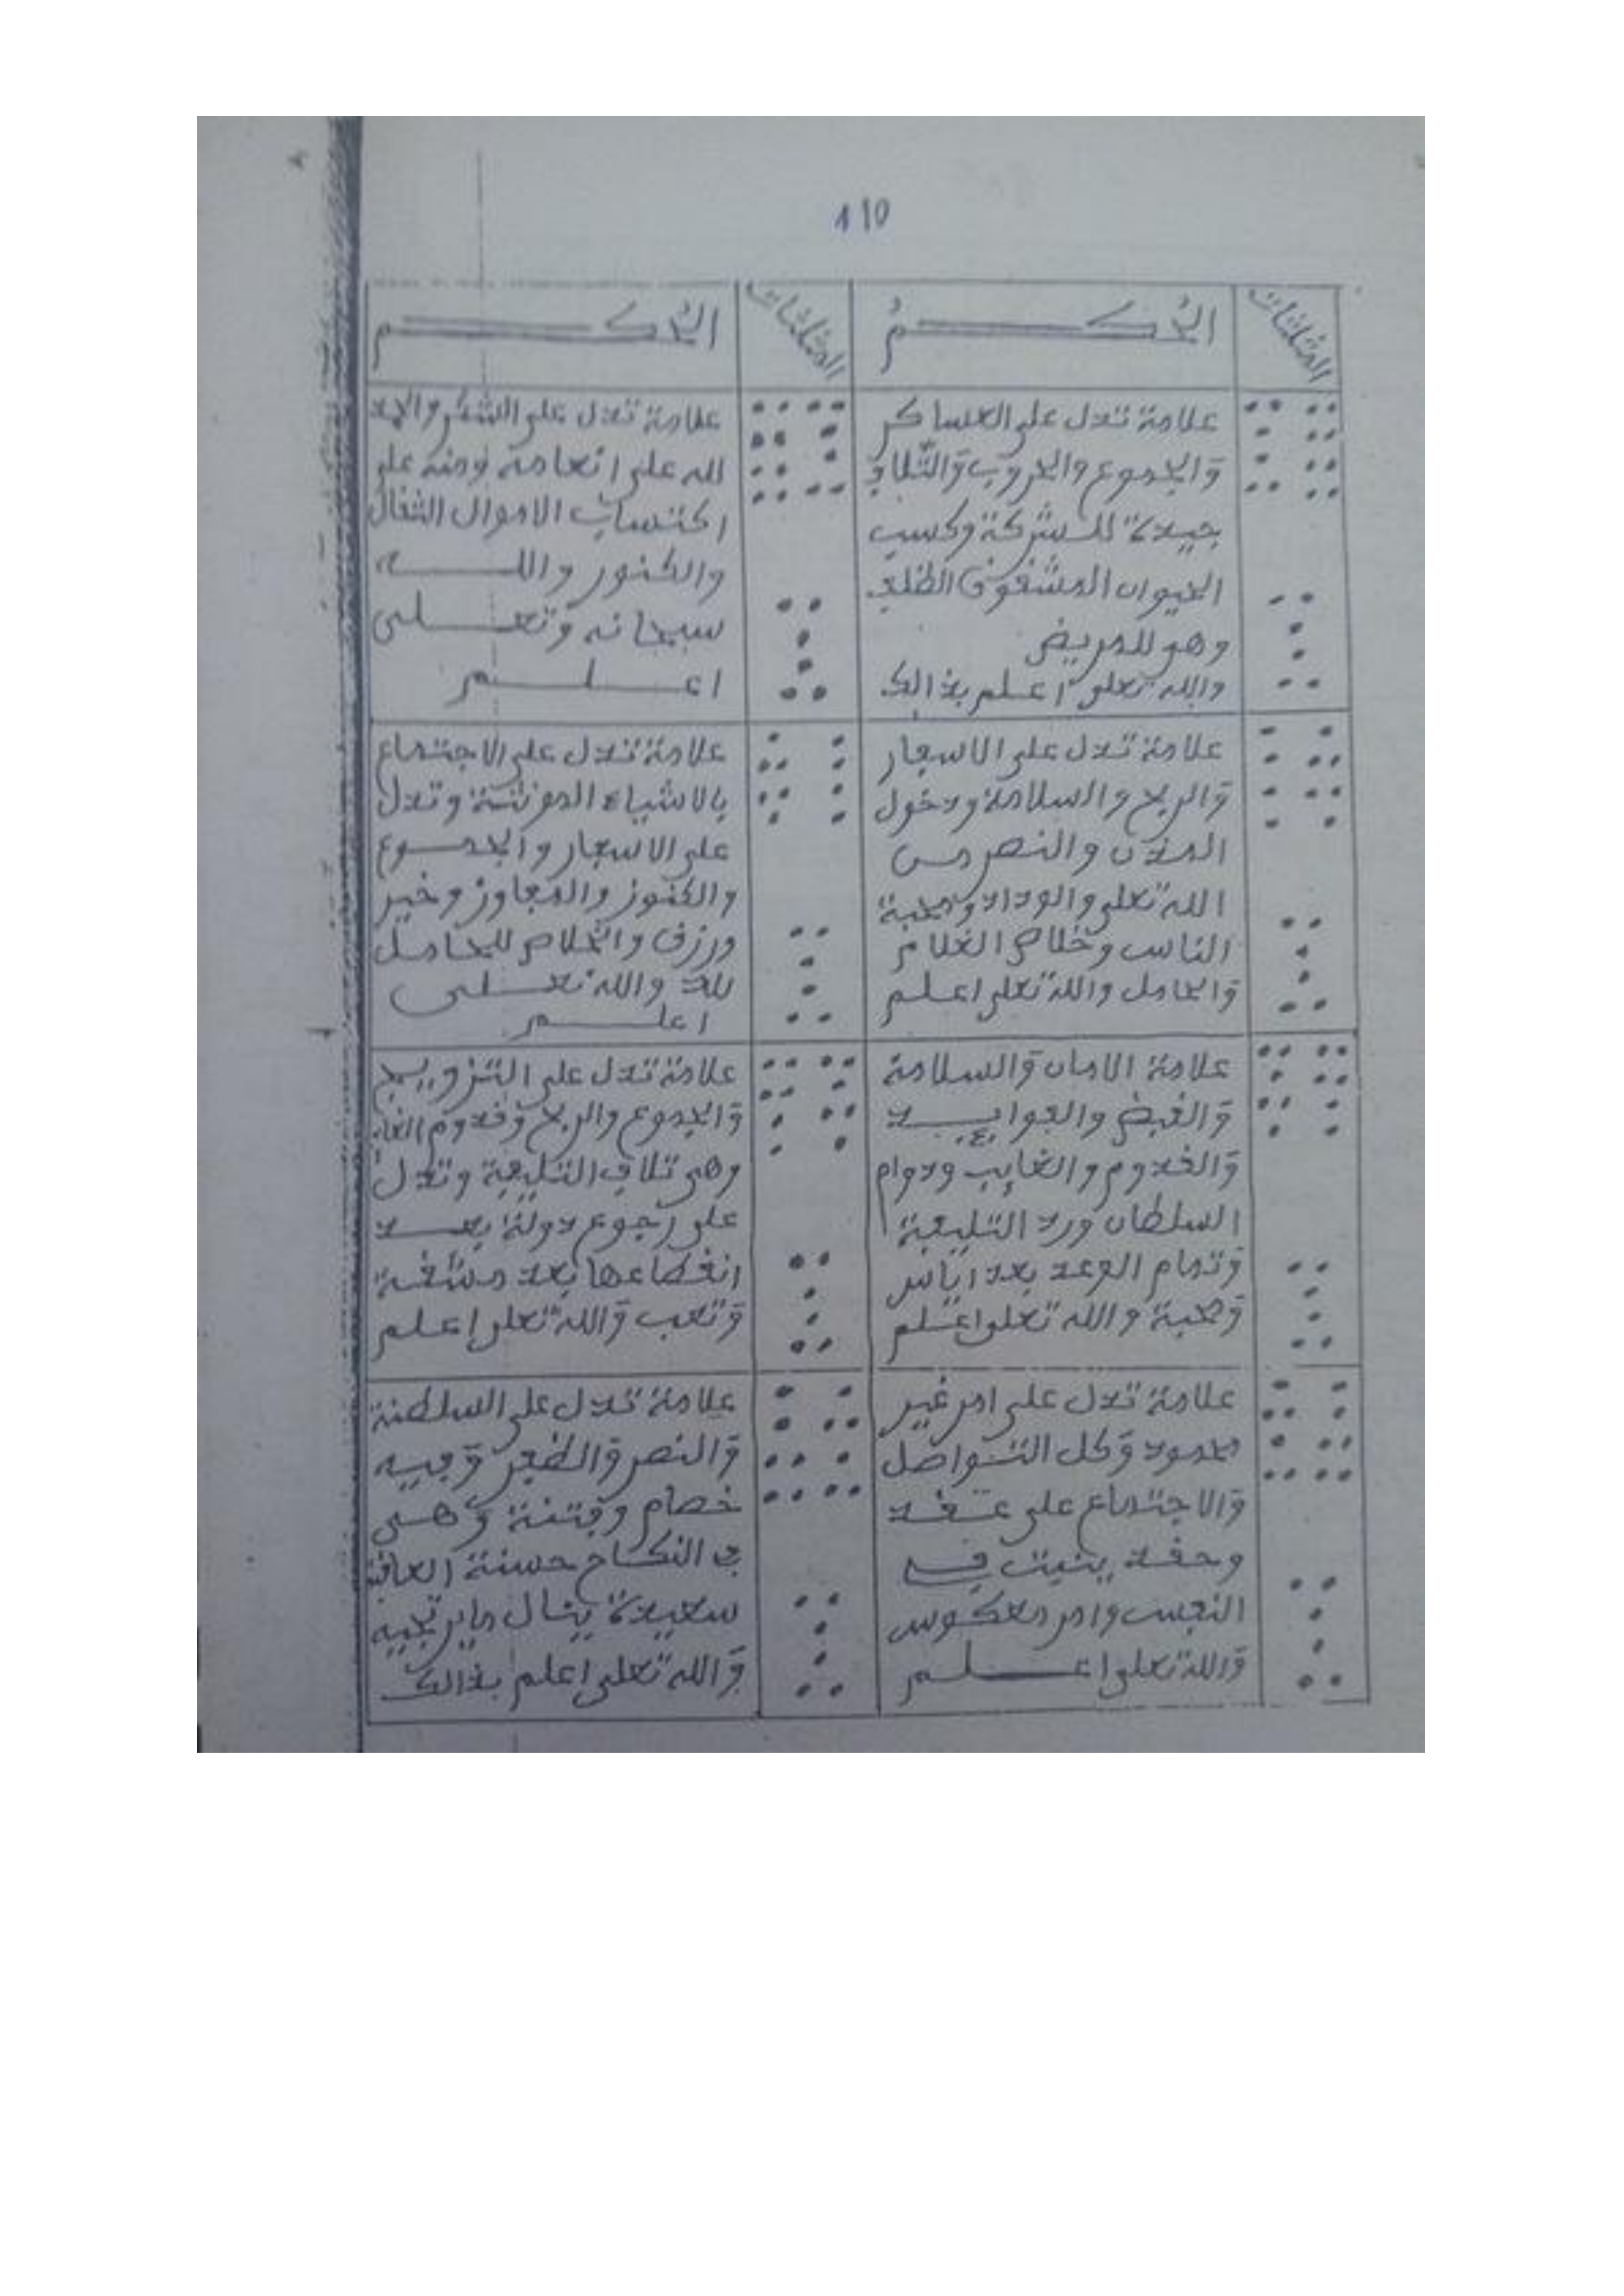 110
المثلثات
الحكم
المثلثات
الحكم
علامة تدل على العساكر
والجموع والحروب والتلاف
جيدة للشركة وكسب
الحيوان المشقوق الظلف
وهو للمريض
والله تعلى اعلم بذالك
علامة تدل على الشكر والحمد
لله على انعامه ومنه على
اكتساب الاموال الثقال
والكنوز والله
سبحانه وتعلى
اعلم
علامة تدل على الاسفار
والربح والسلامة ودخول
المدن والنصر من
الله تعلى والوداد ومحبة
الناس وخلاص الغلام
والحامل والله تعلى اعلم
علامة تدل على الاجتماع
بالاشياء المونثة وتدل
على الاسفار والجموع
والكنوز والمفاوز وخير
ورزق والخلاص للحامل
بلاد والله تعلى
اعلم
علامة الامان والسلامة
والقبض والفوايد
والقدوم والغايب ودوام
السلطان ورد التليفة
وتمام الوعد بعد اياس
ومحبة والله تعلى اعلم
علامة تدل على التزويج
والجموع والربح وقدوم الغا
وهي تلاف التليفة وتدل
على رجوع دولة بعد
انقطاعها بعد مشقة
وتعب والله تعلى اعلم
علامة تدل على امر غير
محمود وكل التواصل
والاجتماع على عقد
وحقد ينبت في
النفس وامر معكوس
والله تعلى اعلم
علامة تدل على السلطنة
والنصر والظفر وفيه
خصام وفتنة وهي
في النكاح حسنة العاقبة
سعيدة ينال ما يرتجيه
والله تعلى اعلم بذالك